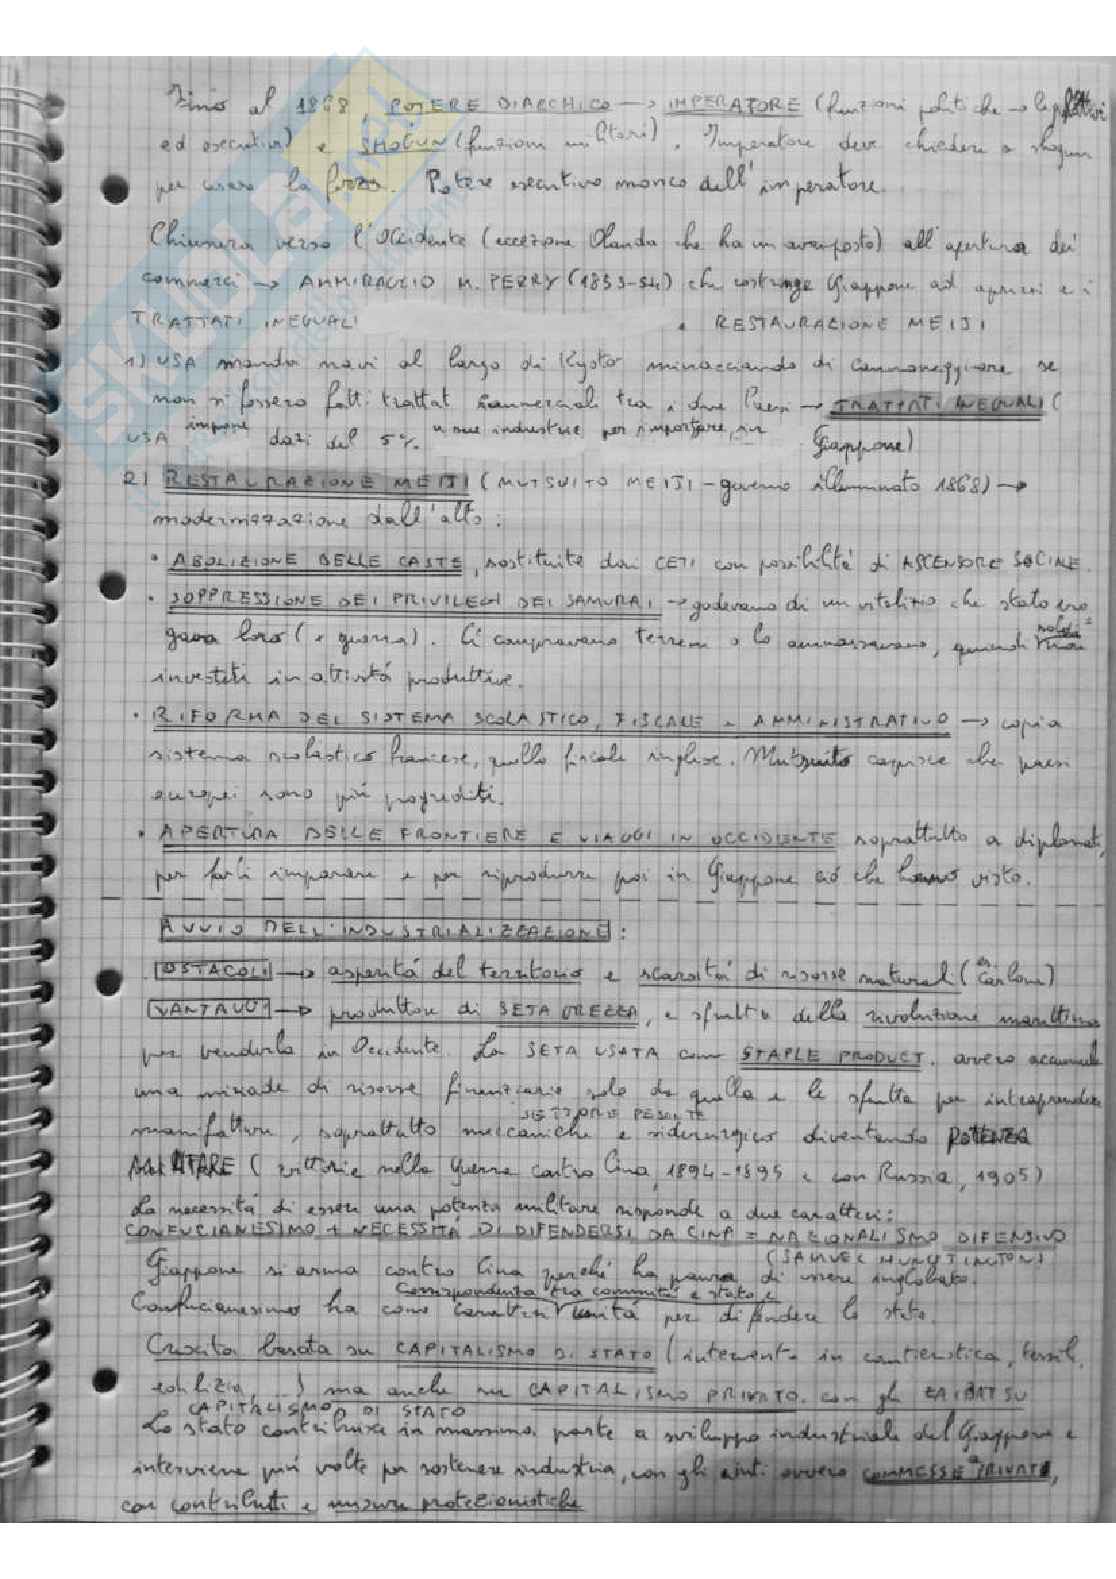 Fino al 1868 POTERE DIARCHICO → IMPERATORE (funzioni politiche → legislativi
ed esecutivi) e SHOGUN (funzioni militari). Imperatore deve chiedere a shogun
per usare la forza. Potere esecutivo monco dell'imperatore.
Chiusura verso l'Occidente (eccezione Olanda che ha un avamposto) all'apertura dei
commerci → AMMIRAGLIO M. PERRY (1853-54) che costringe Giappone ad aprirsi e i
TRATTATI INEGUALI • RESTAURAZIONE MEIJI
1) USA manda navi al largo di Kyoto minacciando di cannoneggiare se
non si fossero fatti trattati commerciali tra i due Paesi → TRATTATI INEGUALI (
USA impone dazi del 5% su sue industrie per importare in Giappone)
2) RESTAURAZIONE MEIJI (MUTSUITO MEIJI - governo illuminato 1868) →
modernizzazione dall'alto:
• ABOLIZIONE DELLE CASTE, sostituite dai CETI con possibilità di ASCENSORE SOCIALE.
• SOPPRESSIONE DEI PRIVILEGI DEI SAMURAI → godevano di un vitalizio che stato ero
gava loro (e guerra). Ci compravano terreni o lo ammassavano, quindi soldi non
investiti in attività produttive.
• RIFORMA DEL SISTEMA SCOLASTICO, FISCALE e AMMINISTRATIVO → copia
sistema scolastico francese, quello fiscale inglese. Mutsuito capisce che paesi
europei sono più progrediti.
• APERTURA DELLE FRONTIERE E VIAGGI IN OCCIDENTE soprattutto a diplomati,
per farli imparare e per riprodurre poi in Giappone ciò che hanno visto.
AVVIO DELL'INDUSTRIALIZZAZIONE:
OSTACOLI → asperità del territorio e scarsità di risorse naturali (es. carbone)
VANTAGGI → produttore di SETA GREZZA, e sfrutta della rivoluzione marittima
per venderla in Occidente. La SETA USATA come STAPLE PRODUCT. ovvero accumula
una miriade di risorse finanziarie solo da quella e le sfrutta per intraprendere
SETTORE PESANTE
manifatture, soprattutto meccaniche e siderurgico diventando POTENZA
MILITARE (vittorie nella Guerra contro Cina, 1894-1895 e con Russia, 1905)
La necessità di essere una potenza militare risponde a due caratteri:
CONFUCIANESIMO + NECESSITÀ DI DIFENDERSI DA CINA = NAZIONALISMO DIFENSIVO
(SAMUEL HUNGTINGTON)
Giappone si arma contro Cina perché ha paura di essere inglobato.
Corrispondenza tra comunità e stato e
Confucianesimo ha come caratteri unità per difendere lo stato.
Crescita basata su CAPITALISMO DI STATO (interventi in cantieristica, tessili,
edilizia, ...) ma anche su CAPITALISMO PRIVATO con gli ZAIBATSU
CAPITALISMO DI STATO
Lo stato contribuisce in massima parte a sviluppo industriale del Giappone e
interviene più volte per sostenere industria, con gli aiuti ovvero COMMESSE a PRIVATI,
con contributi e misure protezionistiche